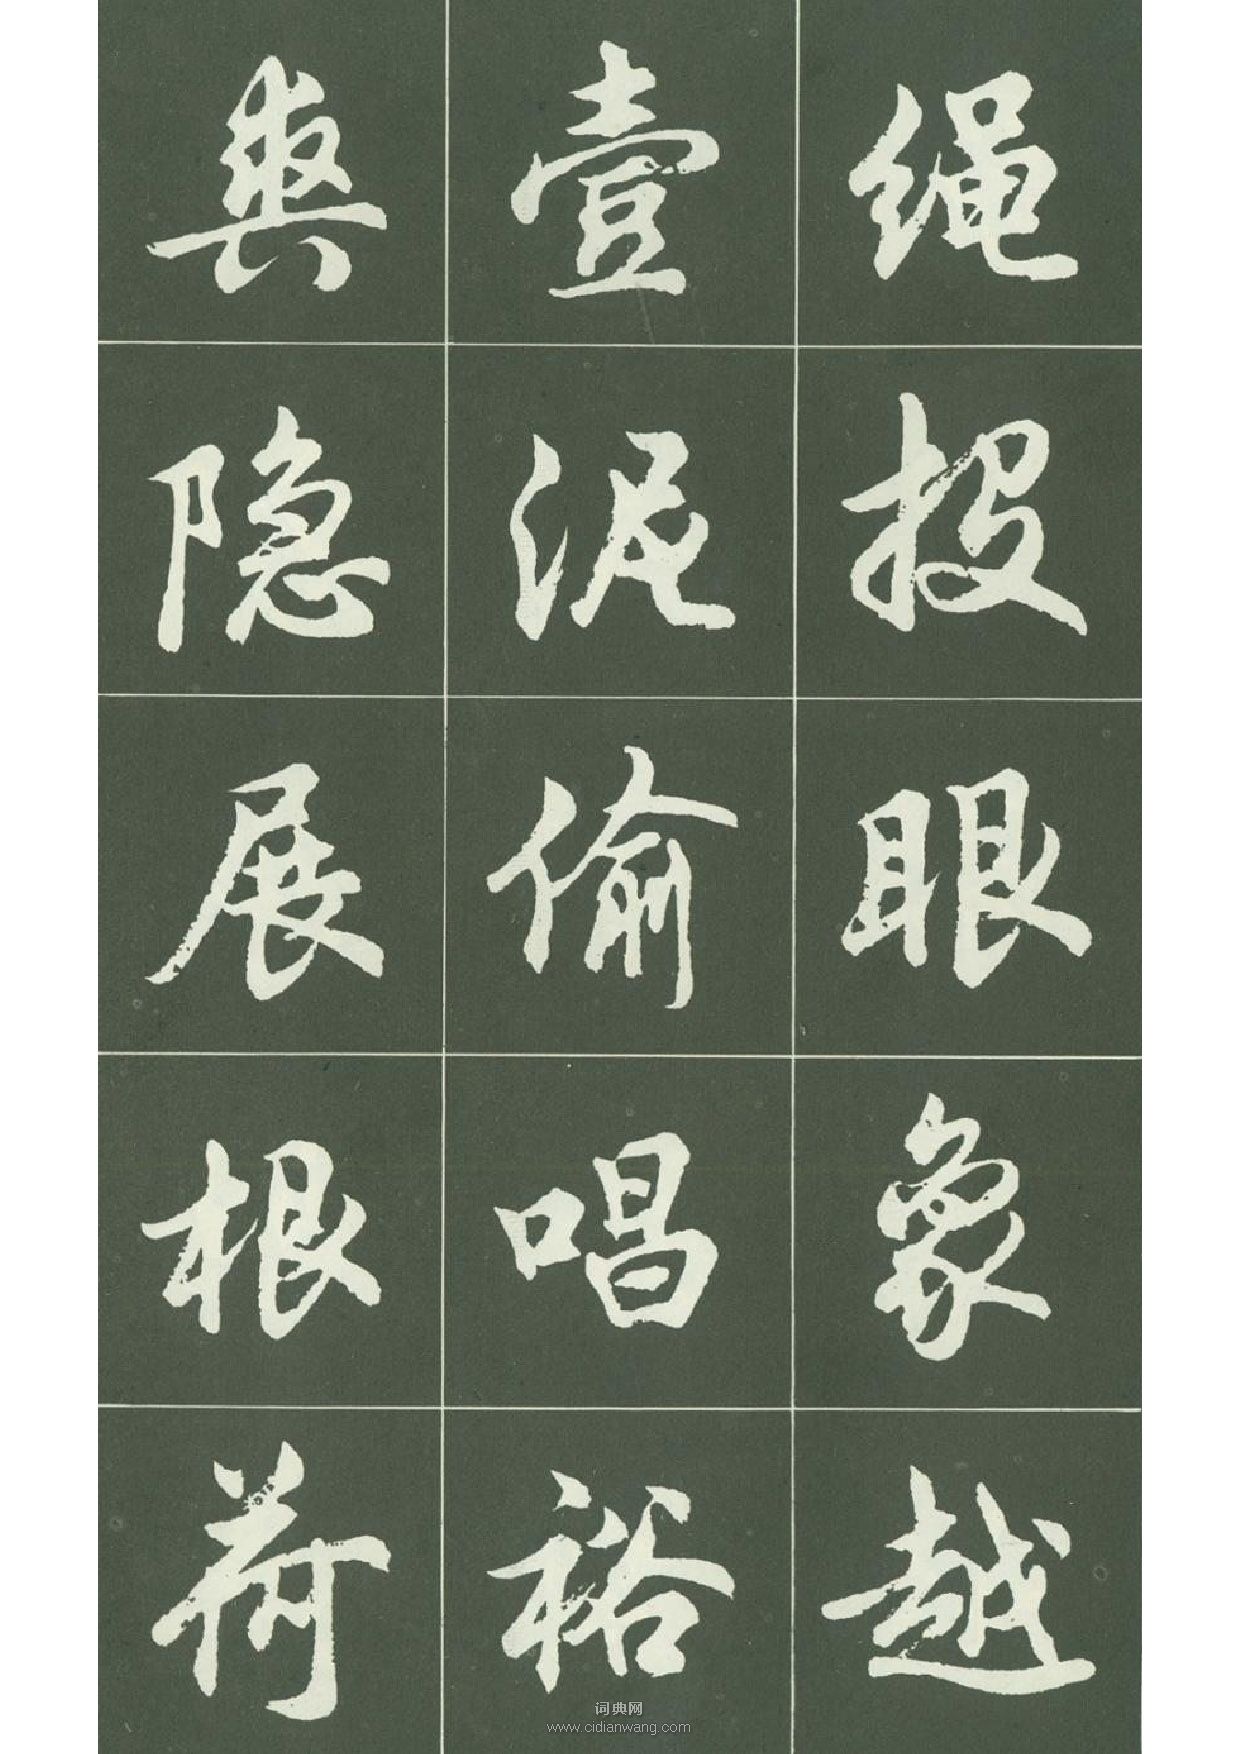 绳投眼象越
壹泥偷唱裕
隐展根荷
词典网
www.cidianwang.com